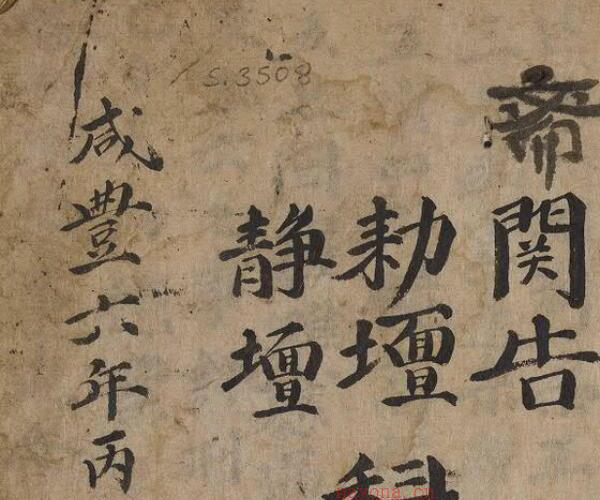 S.3508
斋関告
勅壇科
静壇
咸豊六年丙